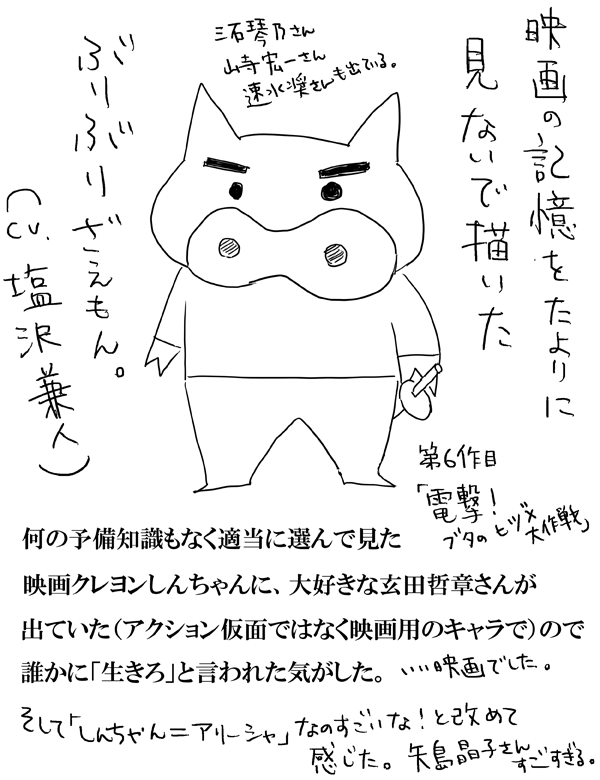 映画の記憶をたよりに
見ないで描いた
三石琴乃さん
山寺宏一さん
速水奨さんも出ている。
ぶりぶりざえもん。
（CV.塩沢兼人）
第6作目
「電撃！
ブタのヒヅメ
大作戦」
何の予備知識もなく適当に選んで見た
映画クレヨンしんちゃんに、大好きな玄田哲章さんが
出ていた（アクション仮面ではなく映画用のキャラで）ので
誰かに「生きろ」と言われた気がした。いい映画でした。
そして「しんちゃん＝アリーシャ」なのすごいな！と改めて
感じた。矢島晶子さん
すごすぎる。